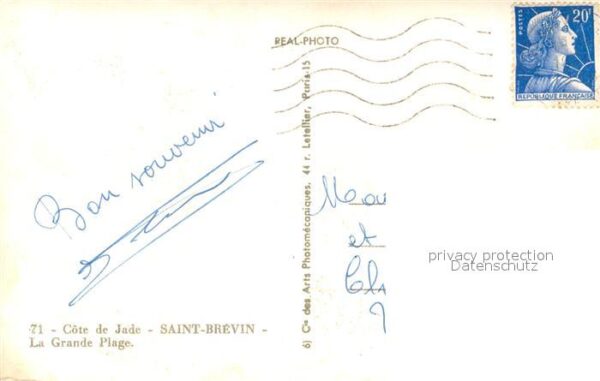 REAL-PHOTO
POSTES
20F
REPUBLIQUE FRANÇAISE
Bon souvenir
6) Cie des Arts Photomécaniques, 44 r. Letellier, Paris-15
et
privacy protection
Datenschutz
71 - Côte de Jade - SAINT-BRÉVIN -
La Grande Plage.